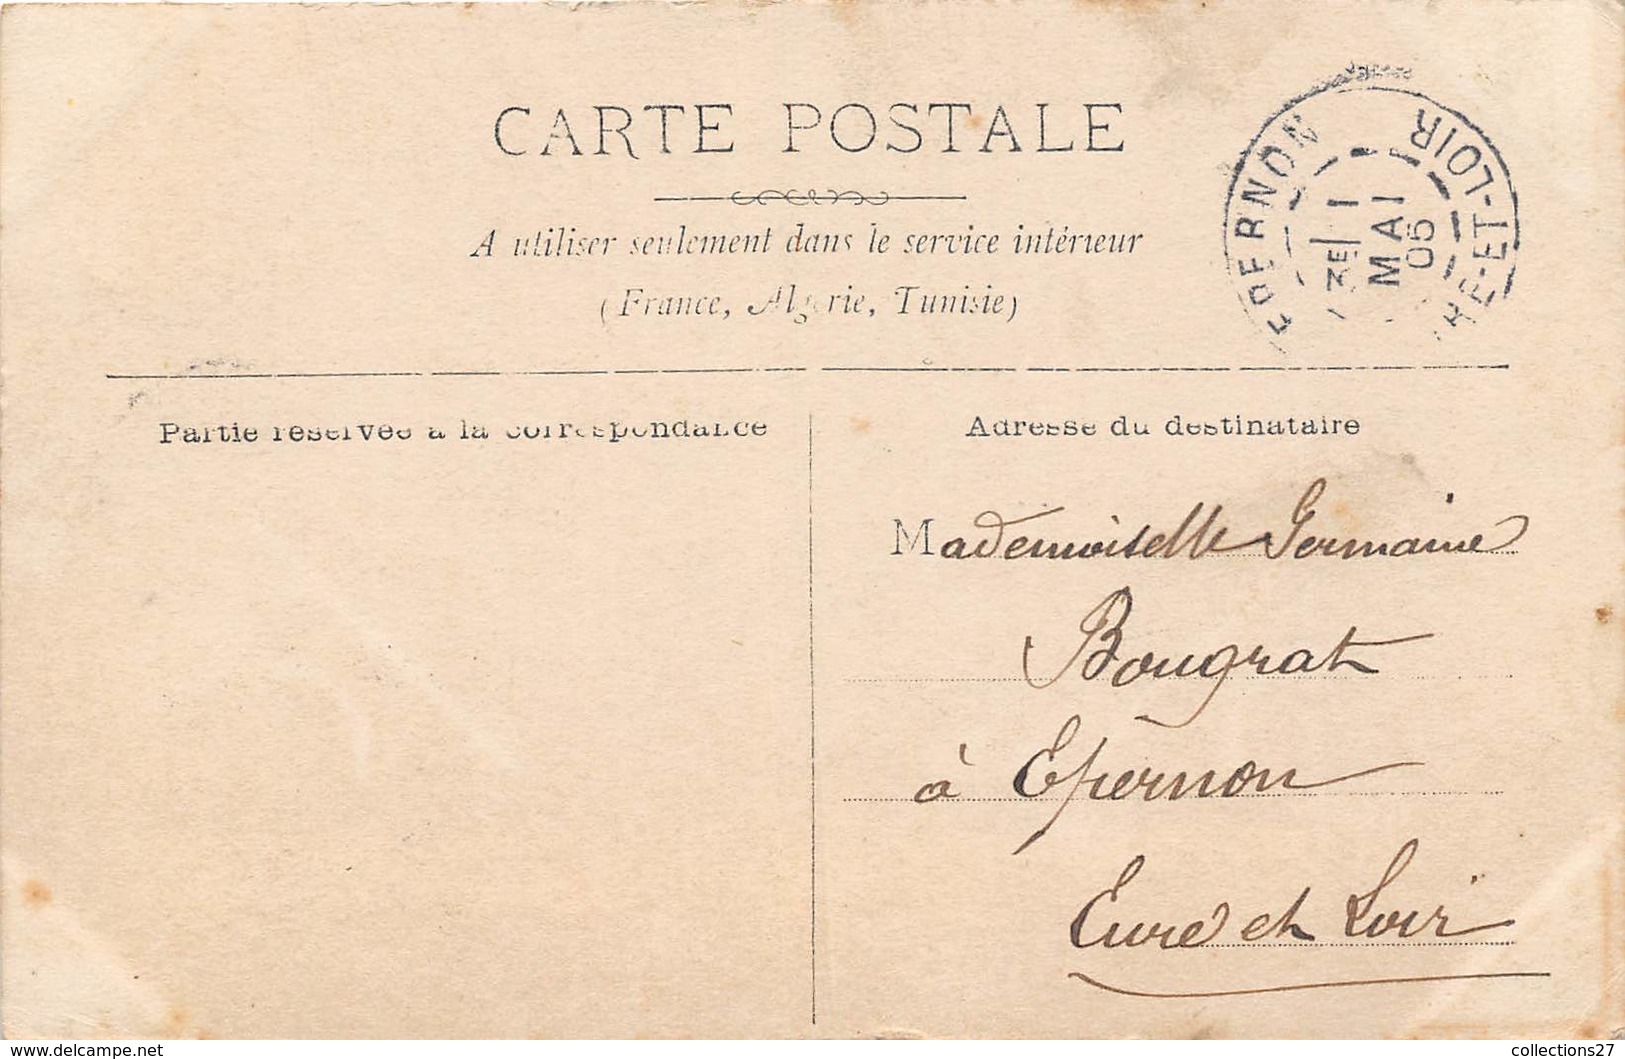 CARTE POSTALE
A utiliser seulement dans le service intérieur
(France, Algérie, Tunisie)
EPERNON
EURE-ET-LOIR
13E 1
MAI
05
Partie réservée à la correspondance
Adresse du destinataire
Mademoiselle Germaine
Bougrat
à Epernon
Eure et Loir
collections27